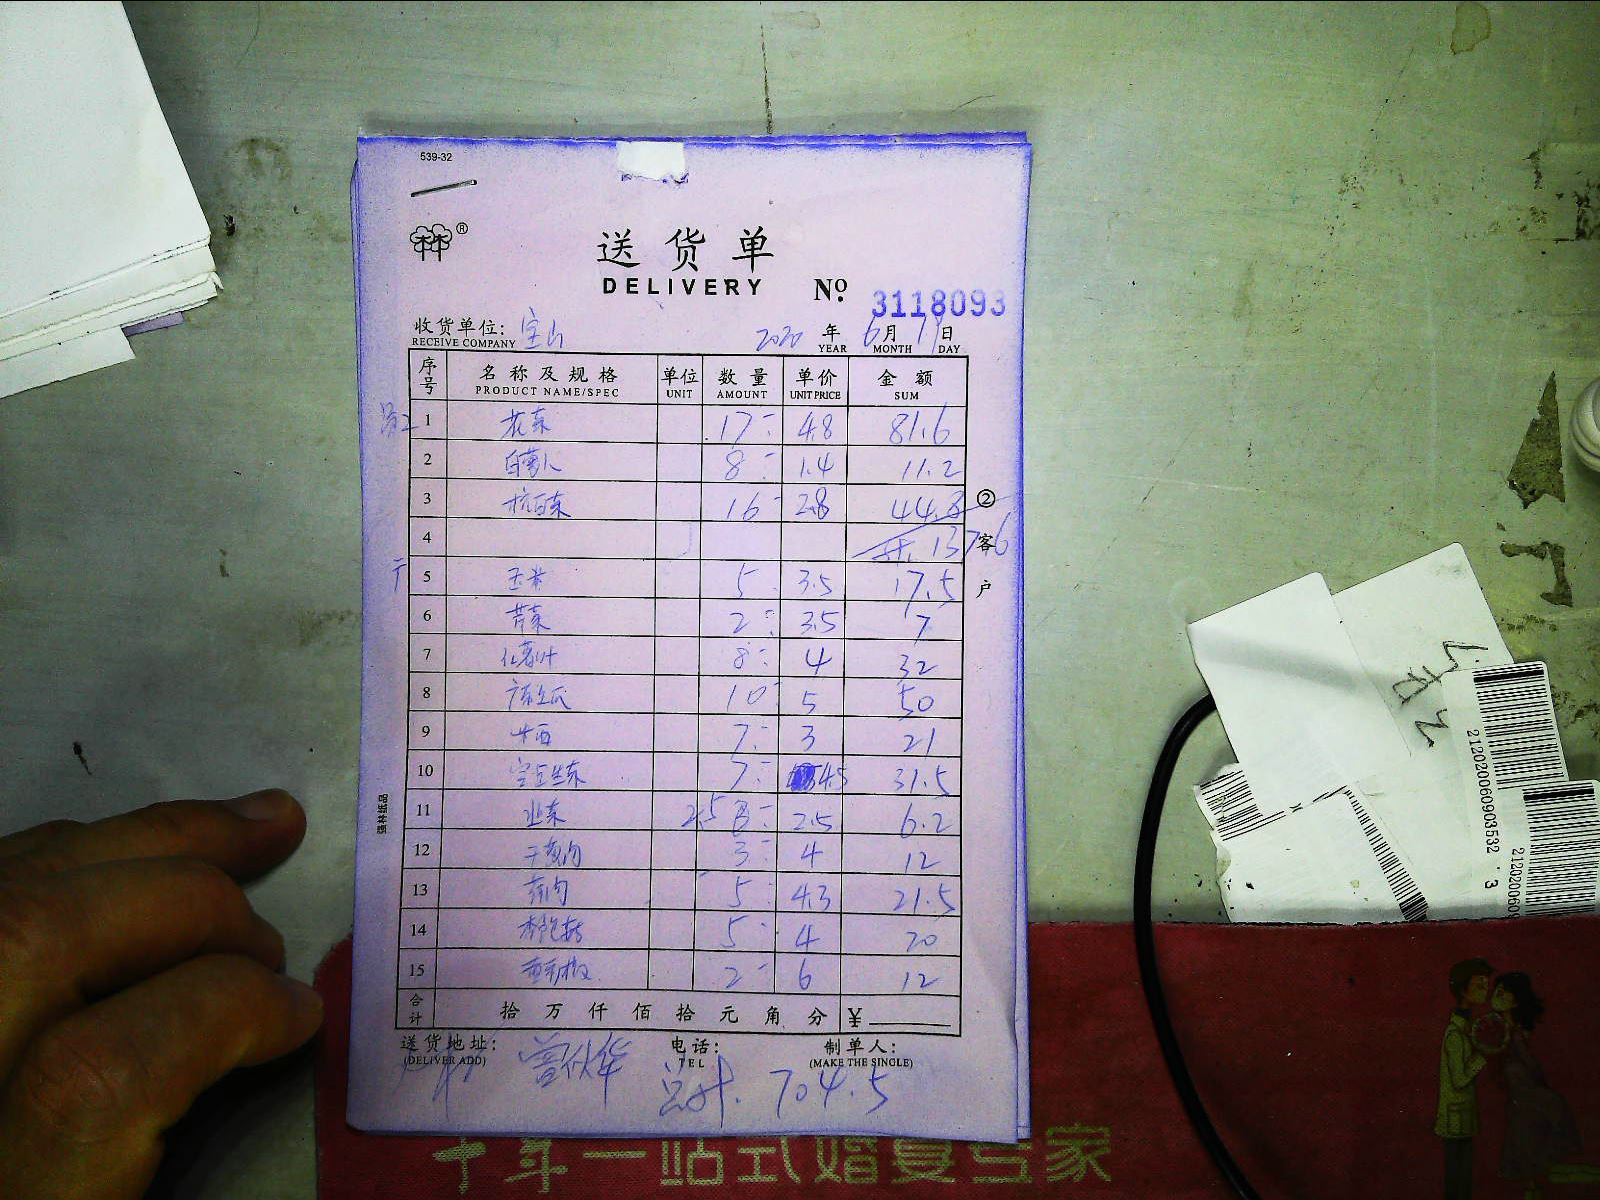 539-32
送货单
DELIVERY
No. 3118093
收货单位: 宝山 2020 年 6 月 19 日
RECEIVE COMPANY YEAR MONTH DAY
序号 名称及规格 单位 数量 单价 金额
PRODUCT NAME/SPEC UNIT AMOUNT UNIT PRICE SUM
员工 1 花菜 17 4.8 81.6
2 白萝卜 8 1.4 11.2
3 杭白菜 16 2.8 44.8
4 计. 137.6
5 玉米 5 3.5 17.5
6 芹菜 2 3.5 7
7 红薯叶 8 4 32
8 广东丝瓜 10 5 50
9 7 3 21
10 7 4.5 31.5
11 2.5 2.5 6.2
12 3 4 12
13 5 4.3 21.5
14 5 4 20
15 2 6 12
合计 拾万仟佰拾元角分 ¥
② 客户
送货地址: 电话: 制单人:
(DELIVER ADD) TEL (MAKE THE SINGLE)
总计. 704.5
十年一站式婚宴专家
21202060903532 3